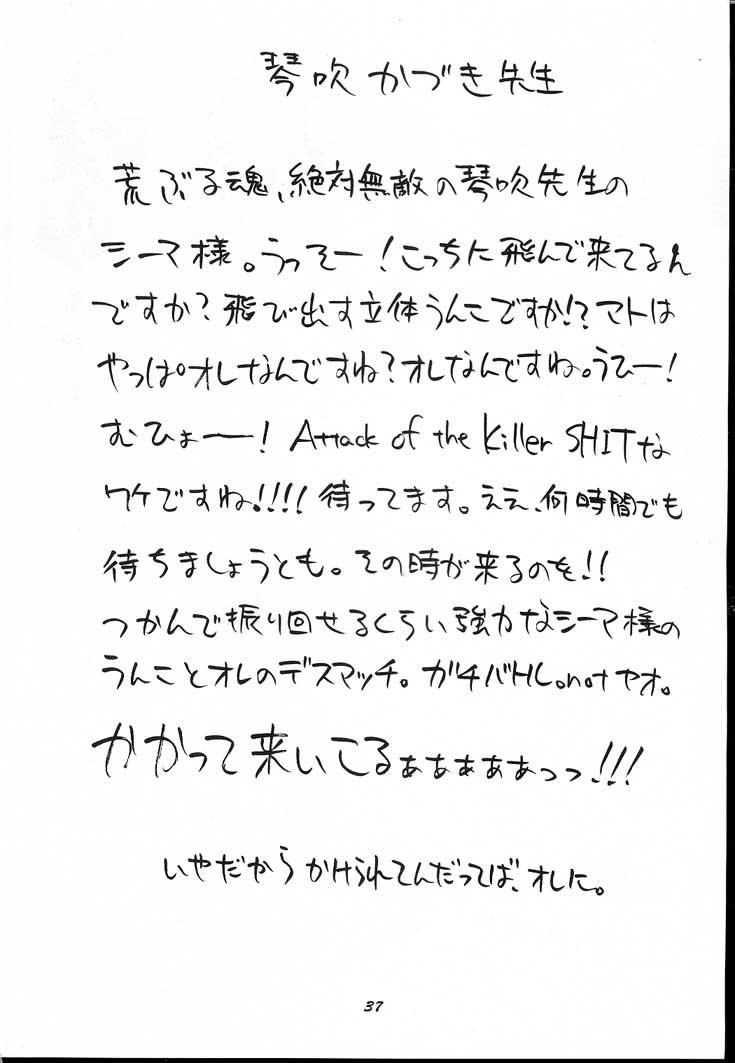 琴吹かづき先生
荒ぶる魂、絶対無敵の琴吹先生の
シーマ様。うっそー！こっちに飛んで来てるん
ですか？飛び出す立体うんこですか!?マトは
やっぱオレなんですね？オレなんですね。うひー！
むひょー！Attack of the Killer SHITな
ワケですね!!!!待ってます。ええ、何時間でも
待ちましょうとも。その時が来るのを!!
つかんで振り回せるくらい強力なシーマ様の
うんことオレのデスマッチ。ガチバトル。not ヤオ。
かかって来いこるぁぁぁぁぁっっ!!!
いやだからかけられてんだってば、オレに。
37